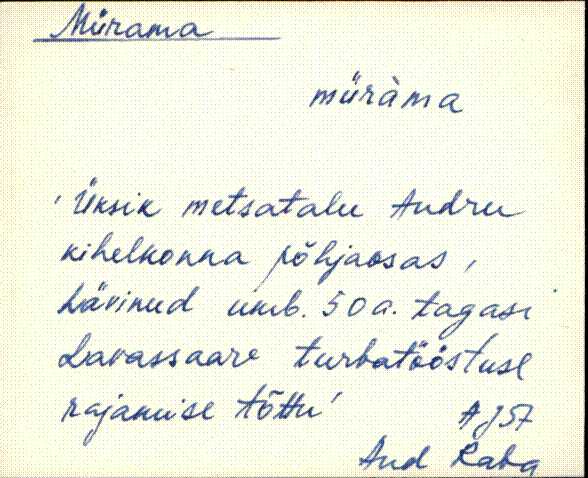 Mürama
müràma
'Üksik metsatalu Audru
kihelkonna põhjaosas,
hävinud umb. 50 a. tagasi
Lavassaare turbatööstuse
rajamise tõttu'
AJ57
Aud Raba